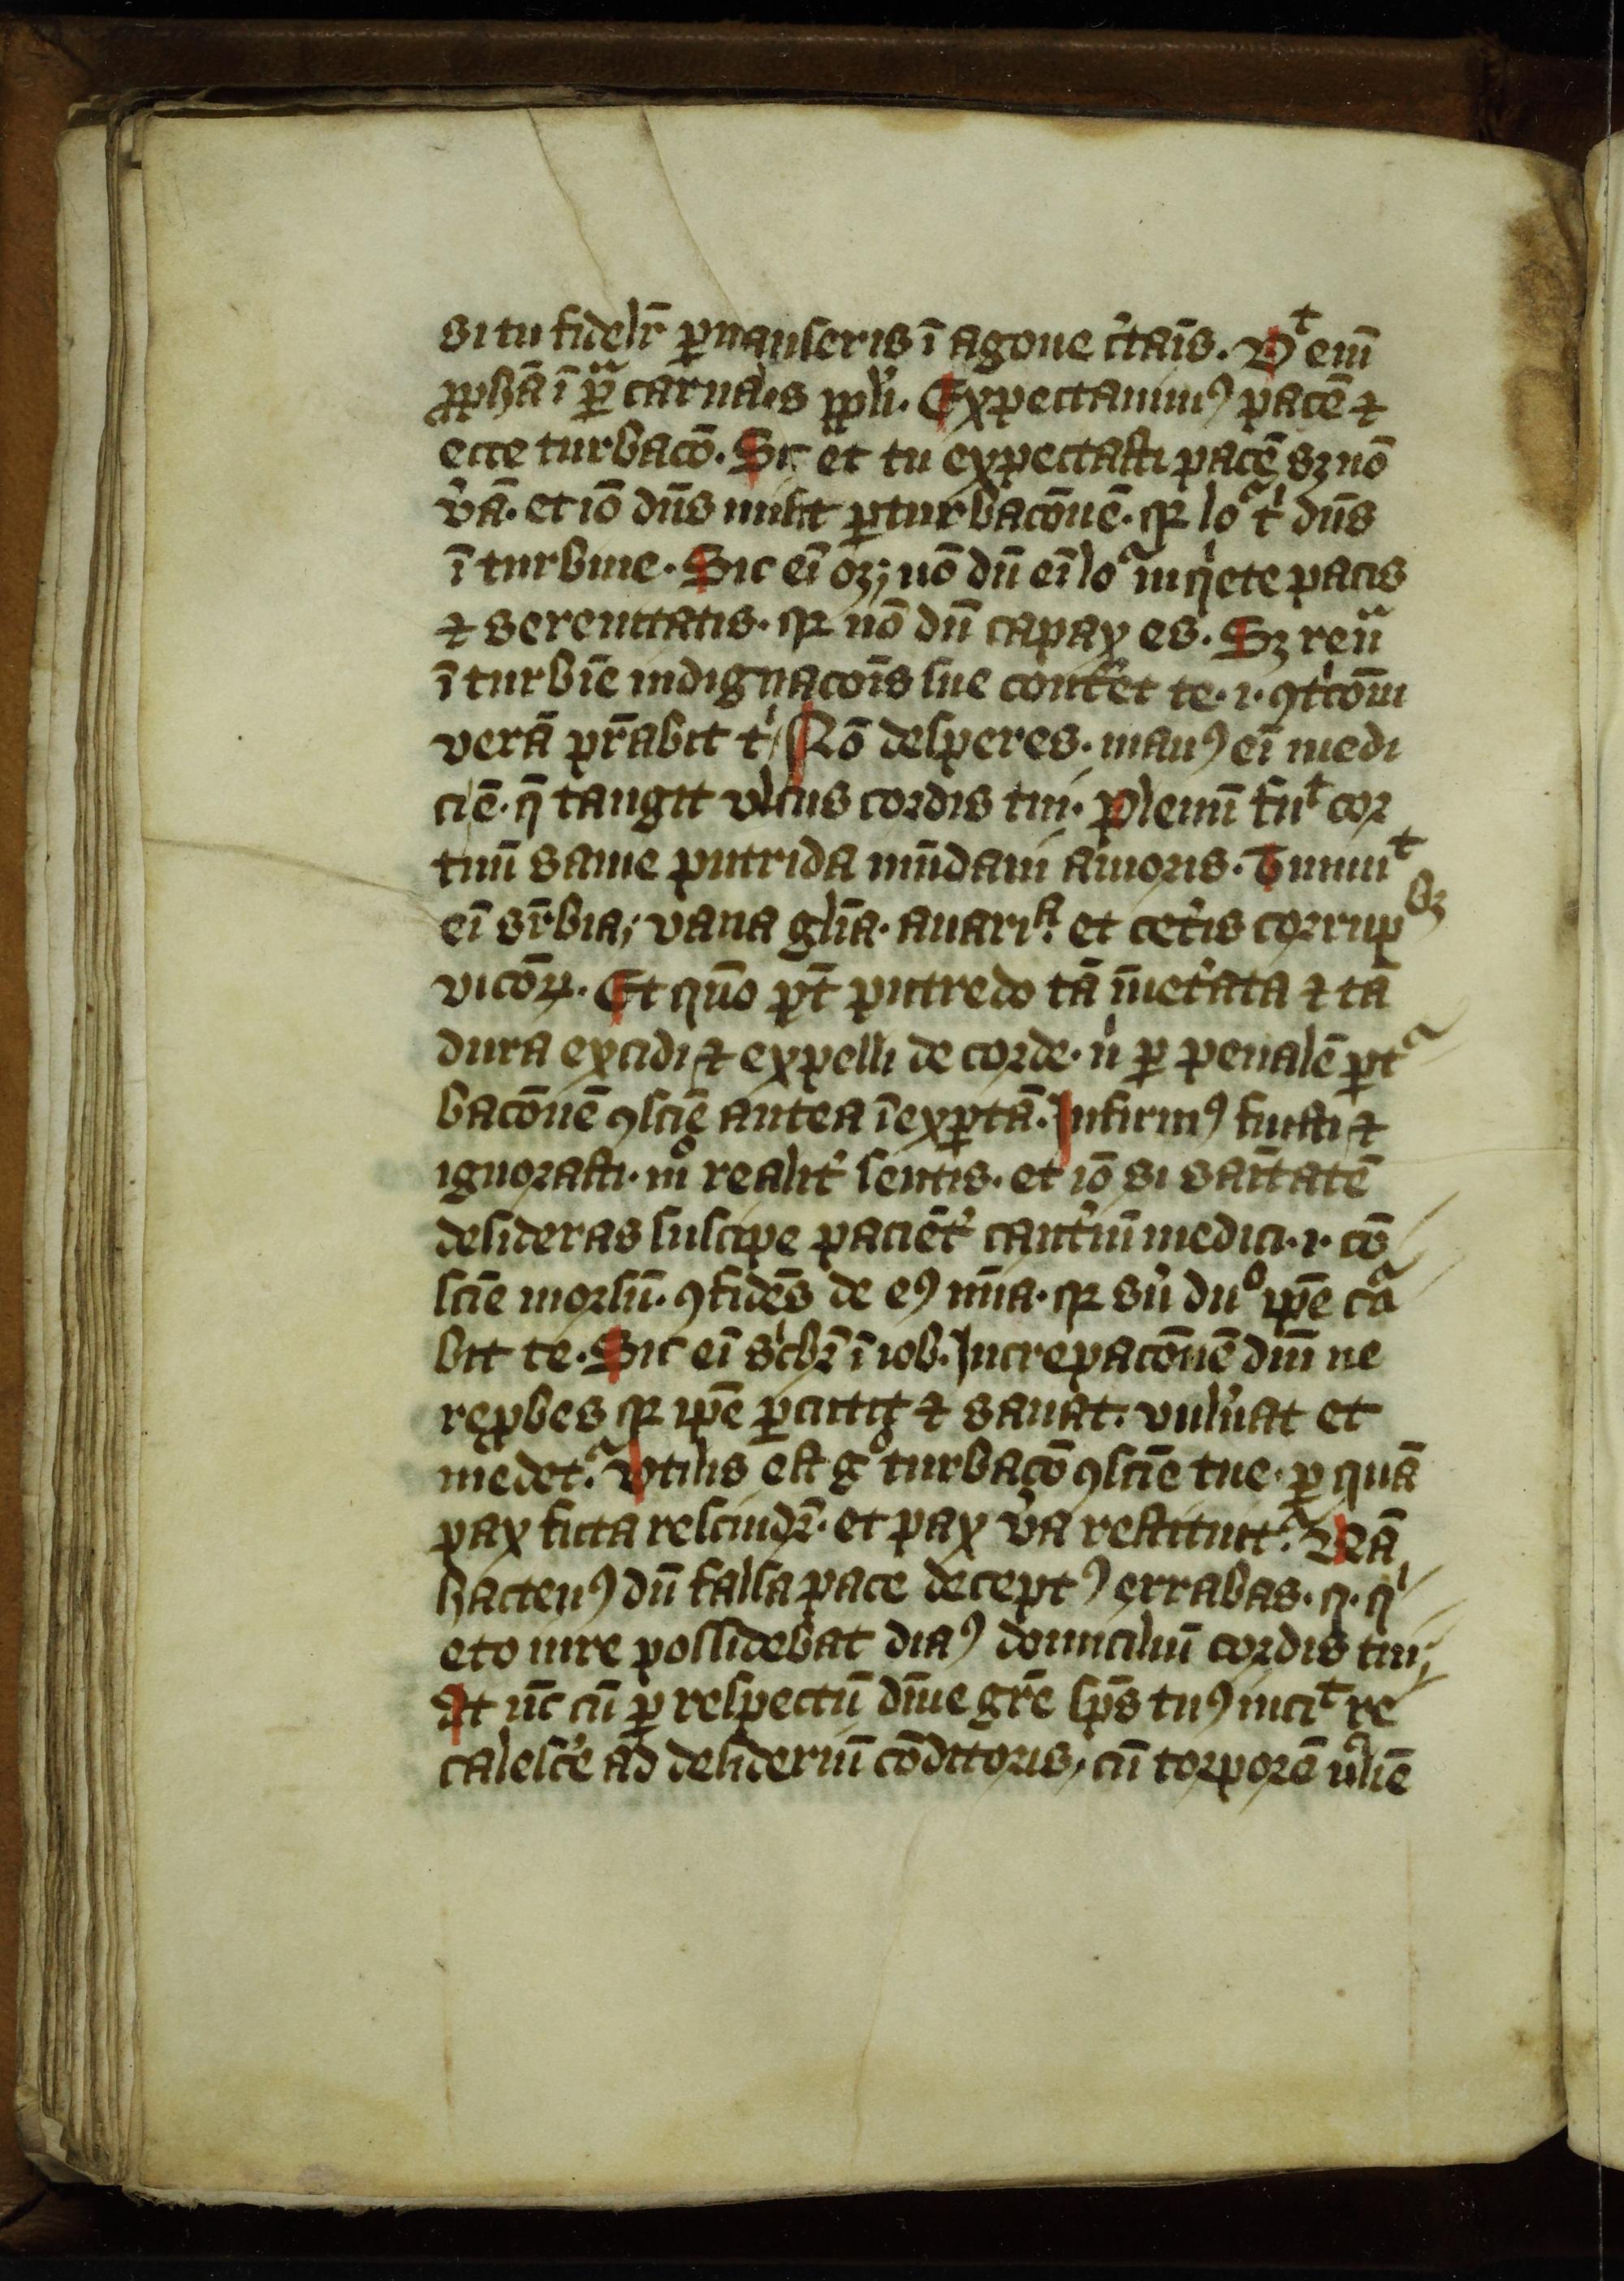 si tu fidelr̄ ꝑmanseris ī agone c̓taīs. Dᵗ enī
ꝓph̄a ī ꝑᵃ carnalis ppl̓i. Expectauimꝰ pacē ⁊
ecce turbacō. Sic et tu expectasti pacē sꝫ nō
v̓ā. et iō dn̄s misit ꝑturbacōnē. qr loᵃ tⁱ dn̄s
ī turbine. Sic eī oꝫ; nō dū eī loᵃ in qⁱete pacis
⁊ serenitatis. qr nō dū capax es. Sꝫ reuᵃ
ī turbīe indignacōīs sue cont̓et te. ı. ꝯtⁱcōm
verā prābit tⁱ Nō desperes. manꝰ eī medi
ciē. q̄ tangit vlcus cordis tui. plenū fuᵗ cor
tuū sanie putrida mūdani amoris. Tumuᵗ
eī sr̄bia; vana gl̄ia. auariᵃ. et cet̓is corrupbꝫ
vicōꝝ. Et quō pt̄ putredo tā īuet̓ata ⁊ tā
dura excidi ⁊ expelli de corde. nⁱ ꝑ penalē ꝑtᵃ
bacōnē ꝯsciē antea īexꝑtā. Infirmꝰ fuisti ⁊
ignorasti. mº realit̓ sentis. et iō si saītatē
desideras suscipe paciēt̓ caut̓iū medici. ı. cō
sciē morsū. ꝯfidēs de eꝰ mīa. qr su̓ duº ip̄e cᵃ
bit te. Sic eī scⁱbr̄ ī iob. Increpacōnē dn̄i ne
reꝓbes qr ip̄e ꝑcutit ⁊ sanat. vuln̓at et
medetᵃ. Vtilis est gº turbacō ꝯsciē tue. ꝑ quā
pax ficta rescindr̄. et pax v̓a restituitᵃ. Nā
hactenꝰ dū falsa pace deceptꝰ errabas. q. qⁱ
eto iure possidebat diaꝰ domiciliū cordis tui;
At nūc cū ꝑ respectū dīne gr̄e sp̄s tuꝰ inciᵗ re
calesc̓e ad desideriū cōditoris, cū torporē